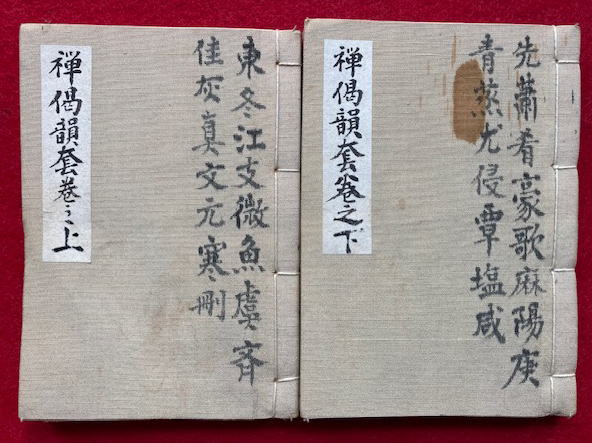 東冬江支微魚虞斉
佳灰真文元寒刪
禅偈韻套巻之上
先蕭肴豪歌麻陽庚
青蒸尤侵覃塩咸
禅偈韻套巻之下